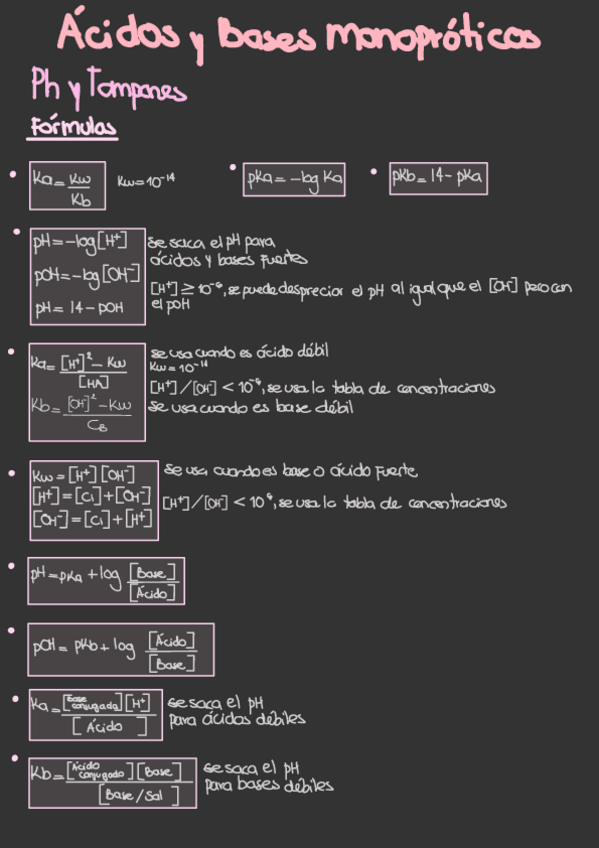 Ácidos y Bases Monopróticos
Ph y Tampones
Fórmulas
Ka = Kw / Kb
Kw = 10⁻¹⁴
pKa = -log Ka
pKb = 14 - pKa
pH = -log [H⁺]
pOH = -log [OH⁻]
pH = 14 - pOH
se saca el pH para
ácidos y bases fuertes
[H⁺] ≥ 10⁻⁶, se puede despreciar el pH al igual que el [OH⁻] pero con
el pOH
Ka = [H⁺]² - Kw / [HA]
Kb = [OH⁻]² - Kw / CB
se usa cuando es ácido débil
Kw = 10⁻¹⁴
[H⁺] / [OH⁻] < 10⁻⁶, se usa la tabla de concentraciones
se usa cuando es base débil
Kw = [H⁺] [OH⁻]
[H⁺] = [Ci] + [OH⁻]
[OH⁻] = [Ci] + [H⁺]
se usa cuando es base o ácido fuerte
[H⁺] / [OH⁻] < 10⁻⁶, se usa la tabla de concentraciones
pH = pKa + log [Base] / [Ácido]
pOH = pKb + log [Ácido] / [Base]
Ka = [Base conjugada] [H⁺] / [Ácido]
se saca el pH
para ácidos débiles
Kb = [Ácido conjugado] [Base] / [Base / Sal]
se saca el pH
para bases débiles